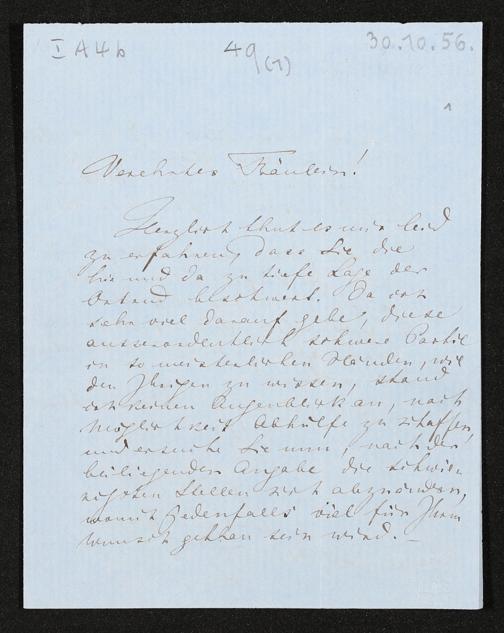 I A 4 b
49 (1)
30.10.56.
1
Verehrtes Fräulein!
Herzlich thut es mir leid
zu erfahren, dass Sie die
hie und da zu tiefe Lage der
Ortrud beschwert. Da ich
sehr viel darauf gebe, diese
ausserordentlich schwere Partie
in so meisterlichen Händen, wie
den Ihrigen zu wissen, stand
ich keinen Augenblick an, nach
Möglichkeit Abhülfe zu schaffen,
und ersuche Sie nun, nach der
beiliegenden Angabe die schwie-
rigsten Stellen sich abzuändern,
womit jedenfalls viel für Ihren
Wunsch gethan sein wird. –